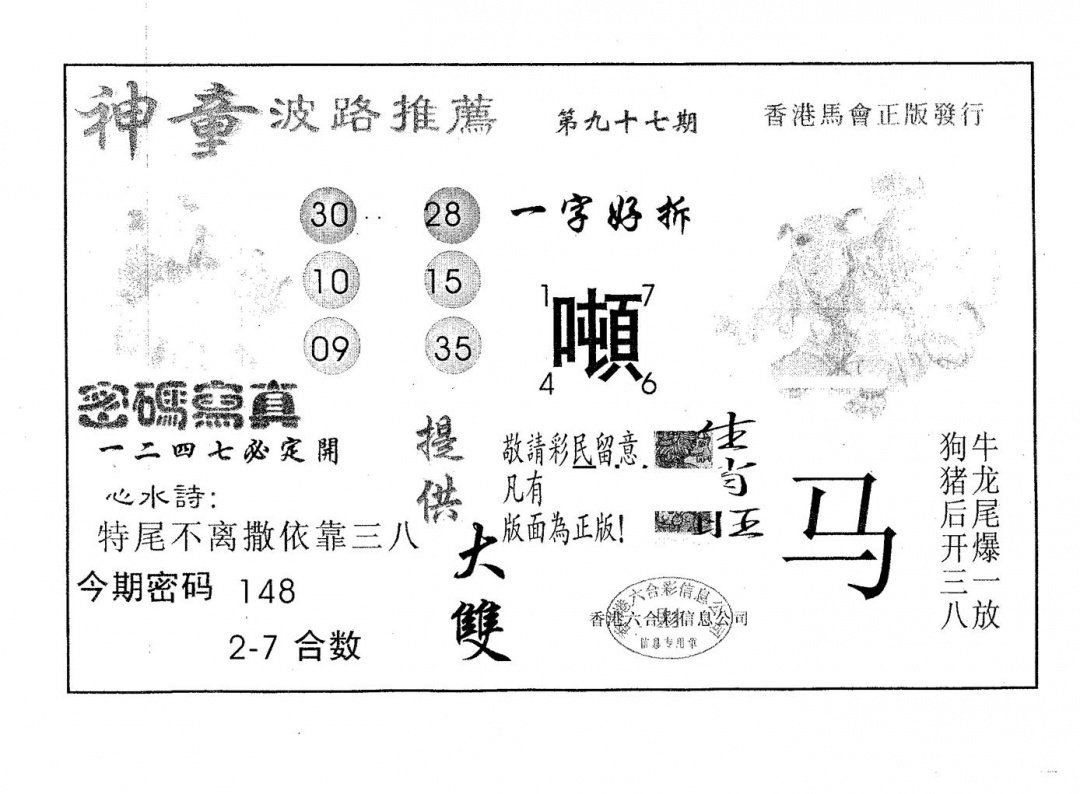 神童波路推薦
第九十七期
香港馬會正版發行
30 28
10 15
09 35
一字好拆
1 7
噸
4 6
密碼寫真
一二四七必定開
心水詩:
特尾不离撒依靠三八
今期密码 148
2-7 合数
提供
大雙
敬請彩民留意
凡有
版面為正版!
香港六合彩信息公司
信息专用章
马
牛龙尾爆一放
狗猪后开三八